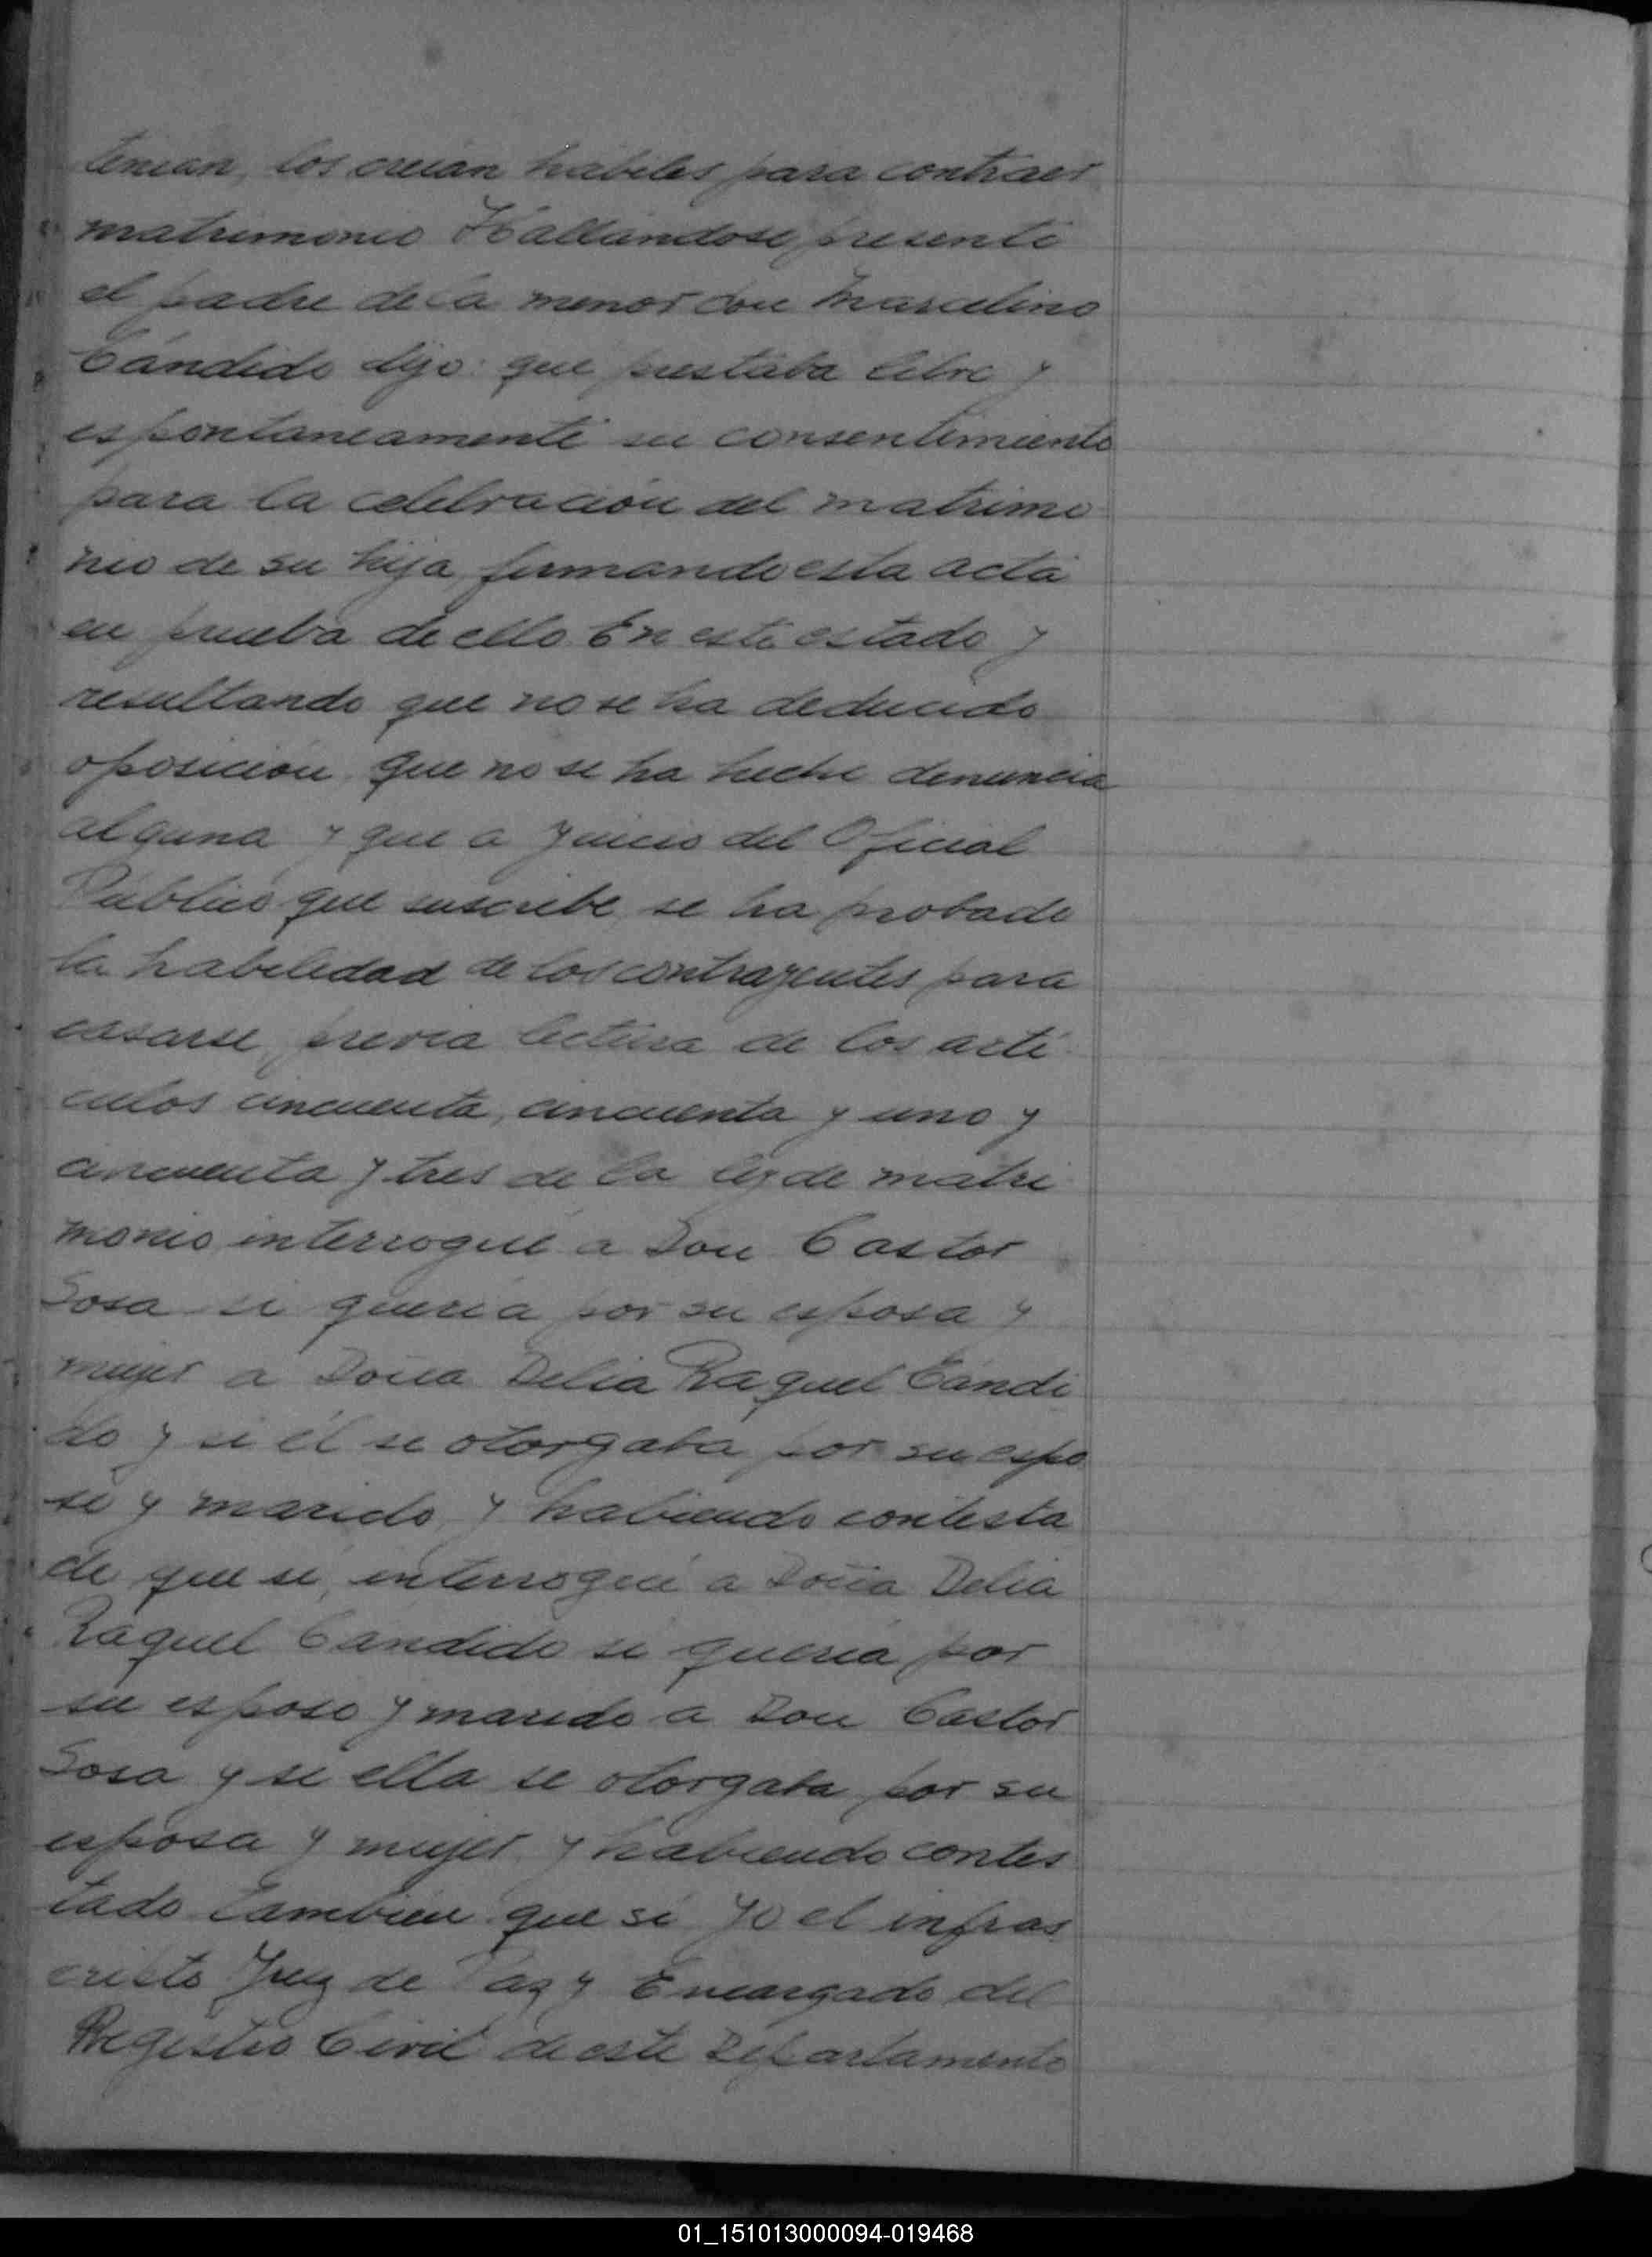 tenian, los creian habiles para contraer
matrimonio Hallándose presente
el padre de la menor don Marcelino
Cándido dijo: que prestaba libre y
espontaneamente su consentimiento
para la celebración del matrimo
nio de su hija, firmando esta acta
en prueba de ello. En este estado y
resultando que no se ha deducido
oposición, que no se ha hecho denuncia
alguna y que a juicio del Oficial
Público que suscribe, se ha probado
la habilidad de los contrayentes para
casarse, previa lectura de los artí
culos cincuenta, cincuenta y uno y
cincuenta y tres de la ley de matri
monio interrogué a Don Castor
Sosa si quería por su esposa y
mujer a Doña Delia Raquel Cándi
do y si él se otorgaba por su espo
so y marido, y habiendo contesta
do que si, interrogué a Doña Delia
Raquel Cándido si quería por
su esposo y marido a Don Castor
Sosa y si ella se otorgaba por su
esposa y mujer y habiendo contes
tado también que si Yo el infras
crito Juez de Paz y Encargado del
Registro Civil de este Departamento
01_151013000094-019468